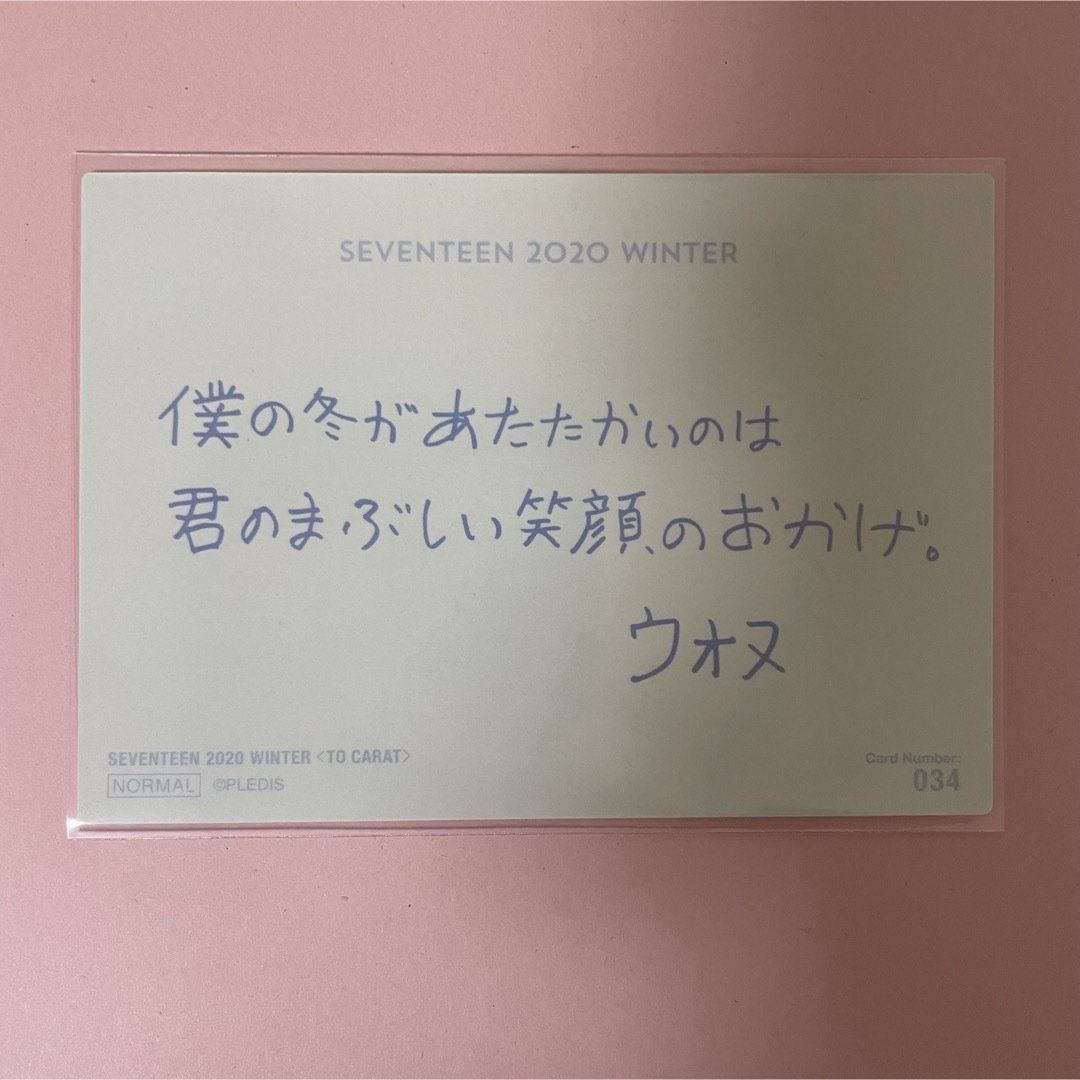 SEVENTEEN 2020 WINTER
僕の冬があたたかいのは
君のまぶしい笑顔のおかげ。
ウォヌ
SEVENTEEN 2020 WINTER〈TO CARAT〉
NORMAL ©PLEDIS
Card Number:
034